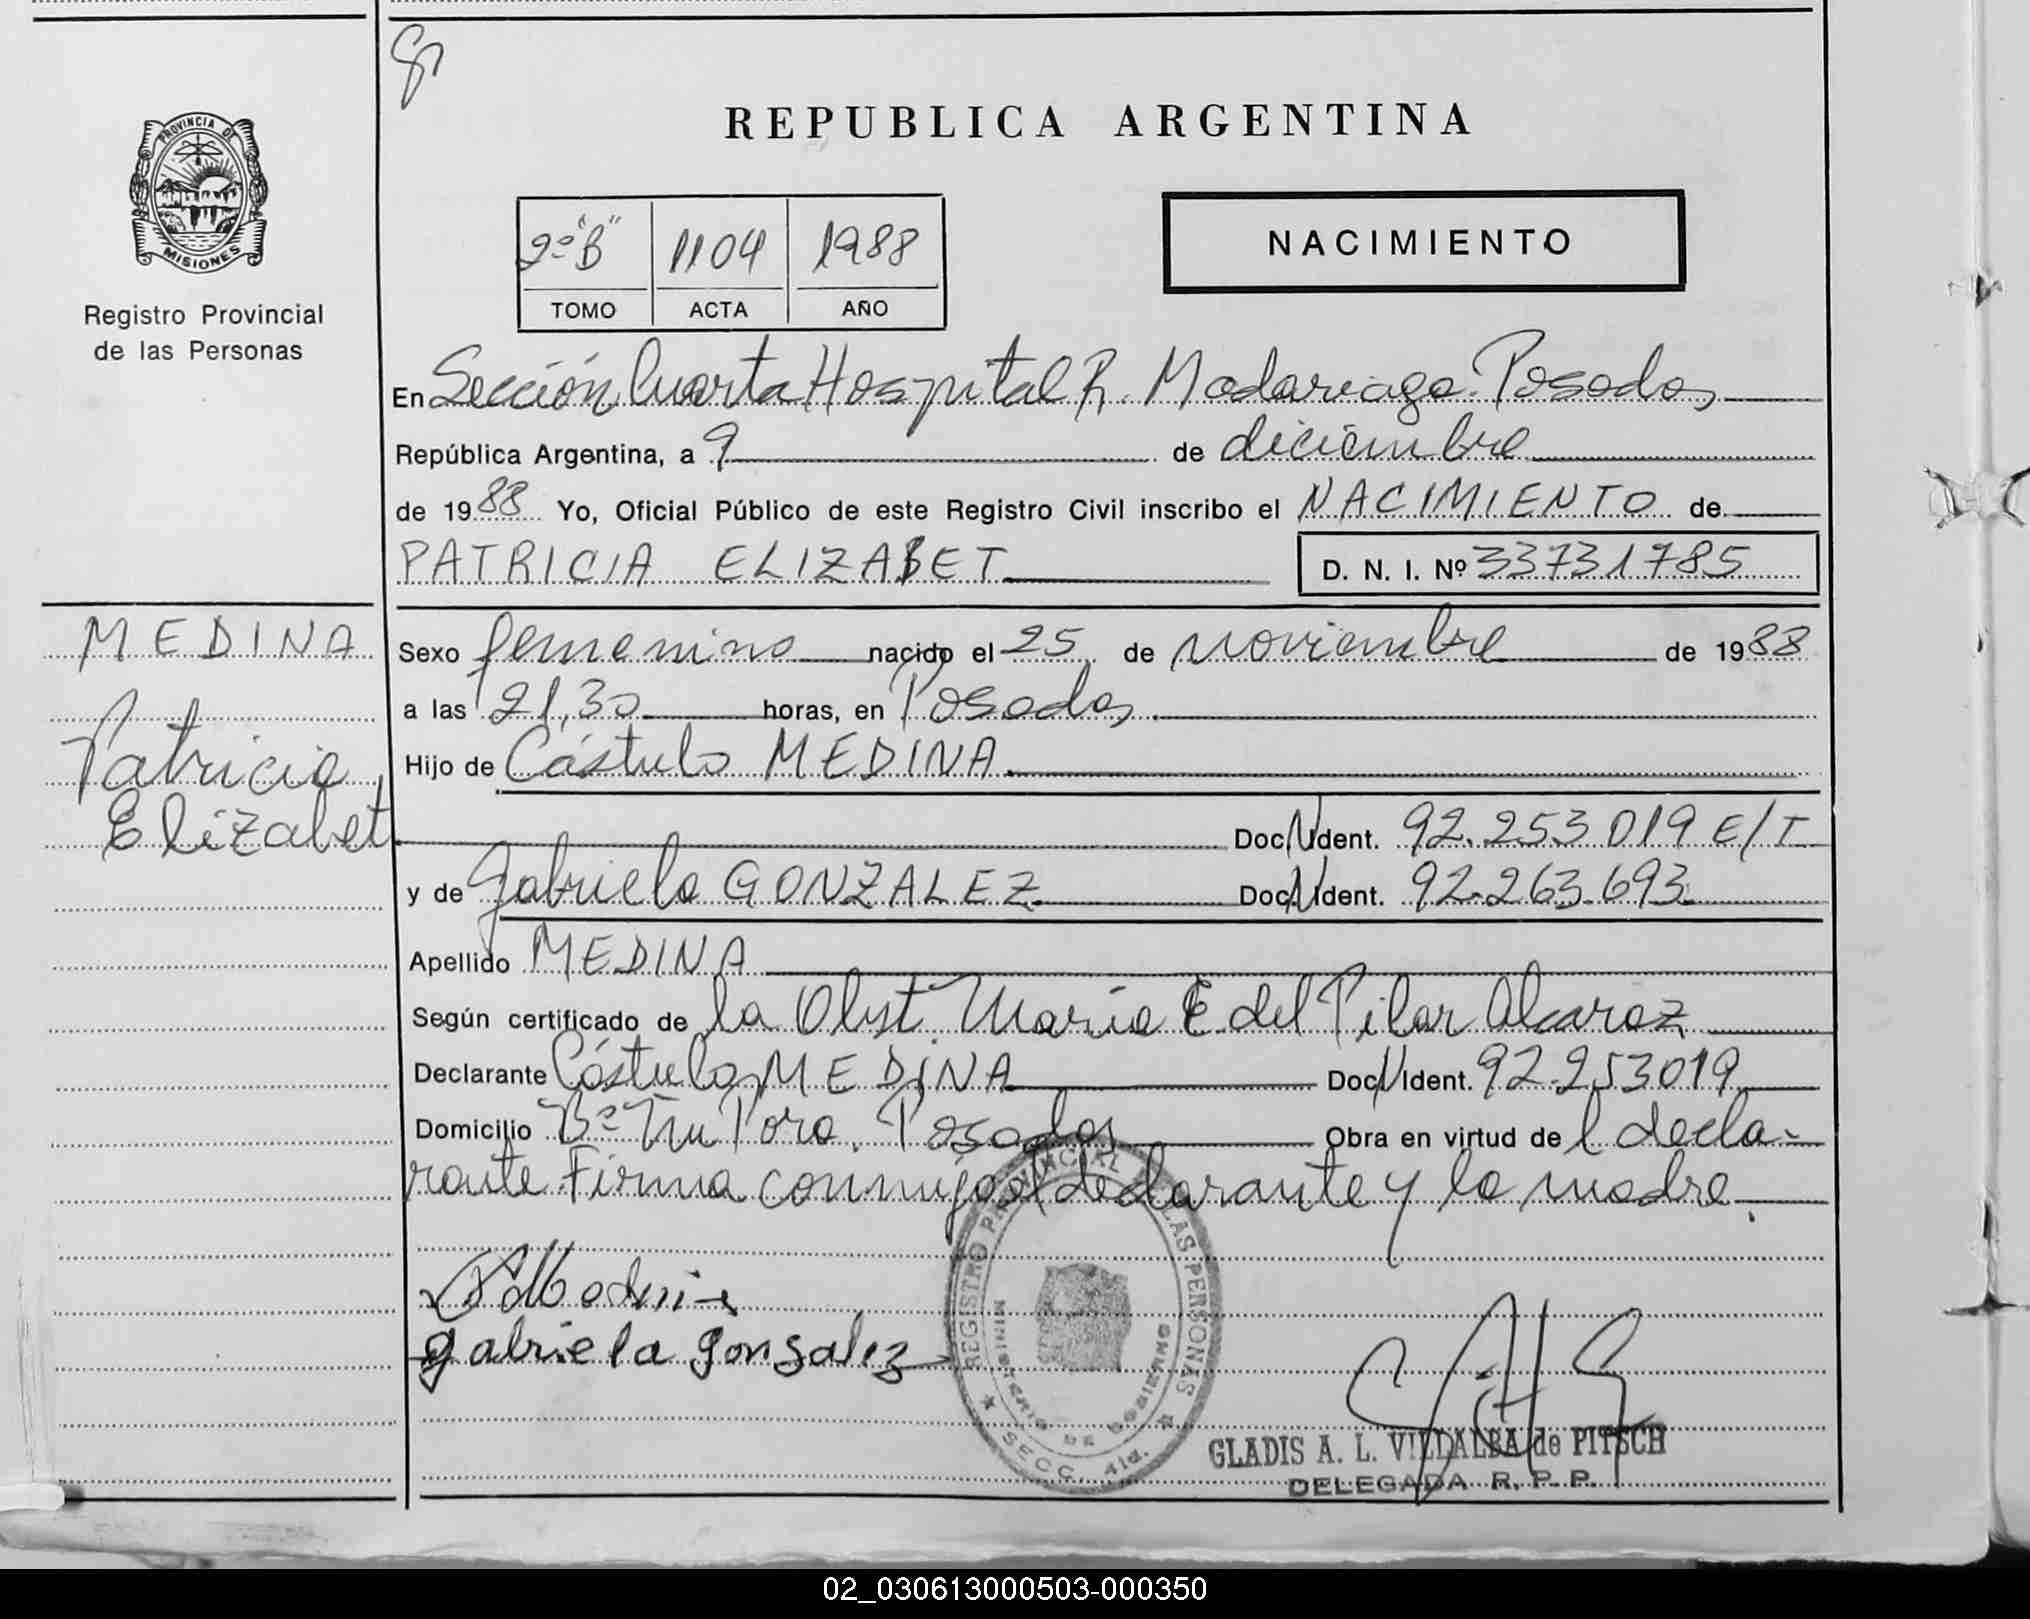 REPUBLICA ARGENTINA
PROVINCIA DE
MISIONES
Registro Provincial
de las Personas
2º "B" 1104 1988
TOMO ACTA AÑO
NACIMIENTO
En Sección Cuarta Hospital R. Madariaga. Posadas
República Argentina, a 9 de diciembre
de 1988 Yo, Oficial Público de este Registro Civil inscribo el NACIMIENTO de
PATRICIA ELIZABET D. N. I. Nº 33731785
MEDINA
Patricia
Elizabet
Sexo femenino nacido el 25 de noviembre de 1988
a las 21,30 horas, en Posadas
Hijo de Cástulo MEDINA
Doc. Ident. 92.253.019 E/T
y de Gabriela GONZALEZ Doc. Ident. 92.263.693
Apellido MEDINA
Según certificado de la Obst. María E del Pilar Alcaraz
Declarante Cástulo MEDINA Doc. Ident. 92.253019
Domicilio Bº Posadas Obra en virtud del decla-
rante Firma conmigo el declarante y la madre.
gabriela gonsalez
REGISTRO PROVINCIAL DE LAS PERSONAS
MINISTERIO DE GOBIERNO
SECC. 4ta.
GLADIS A. L. VILLALBA de PITSCH
DELEGADA R. P. P.
02_030613000503-000350